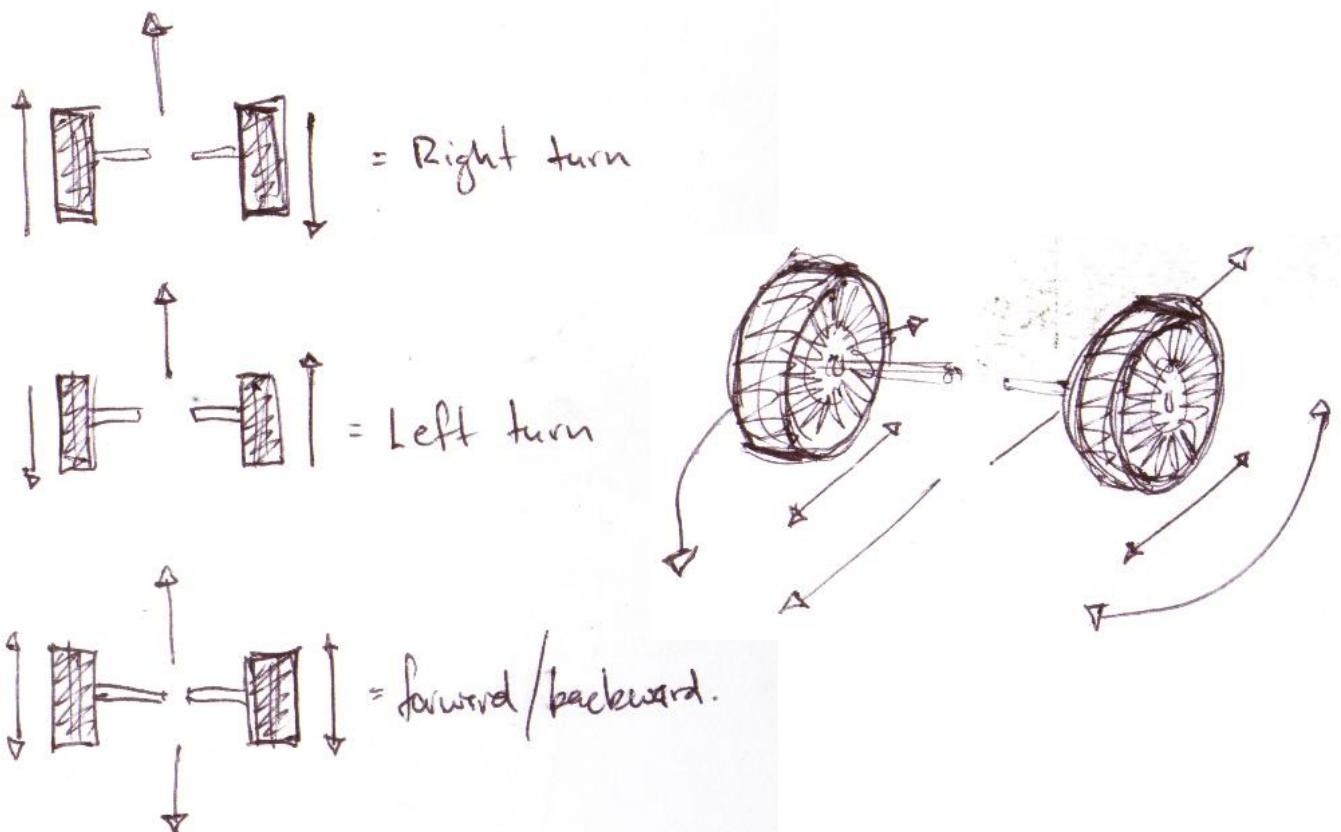 = Right turn
= Left turn
= forward/backward.